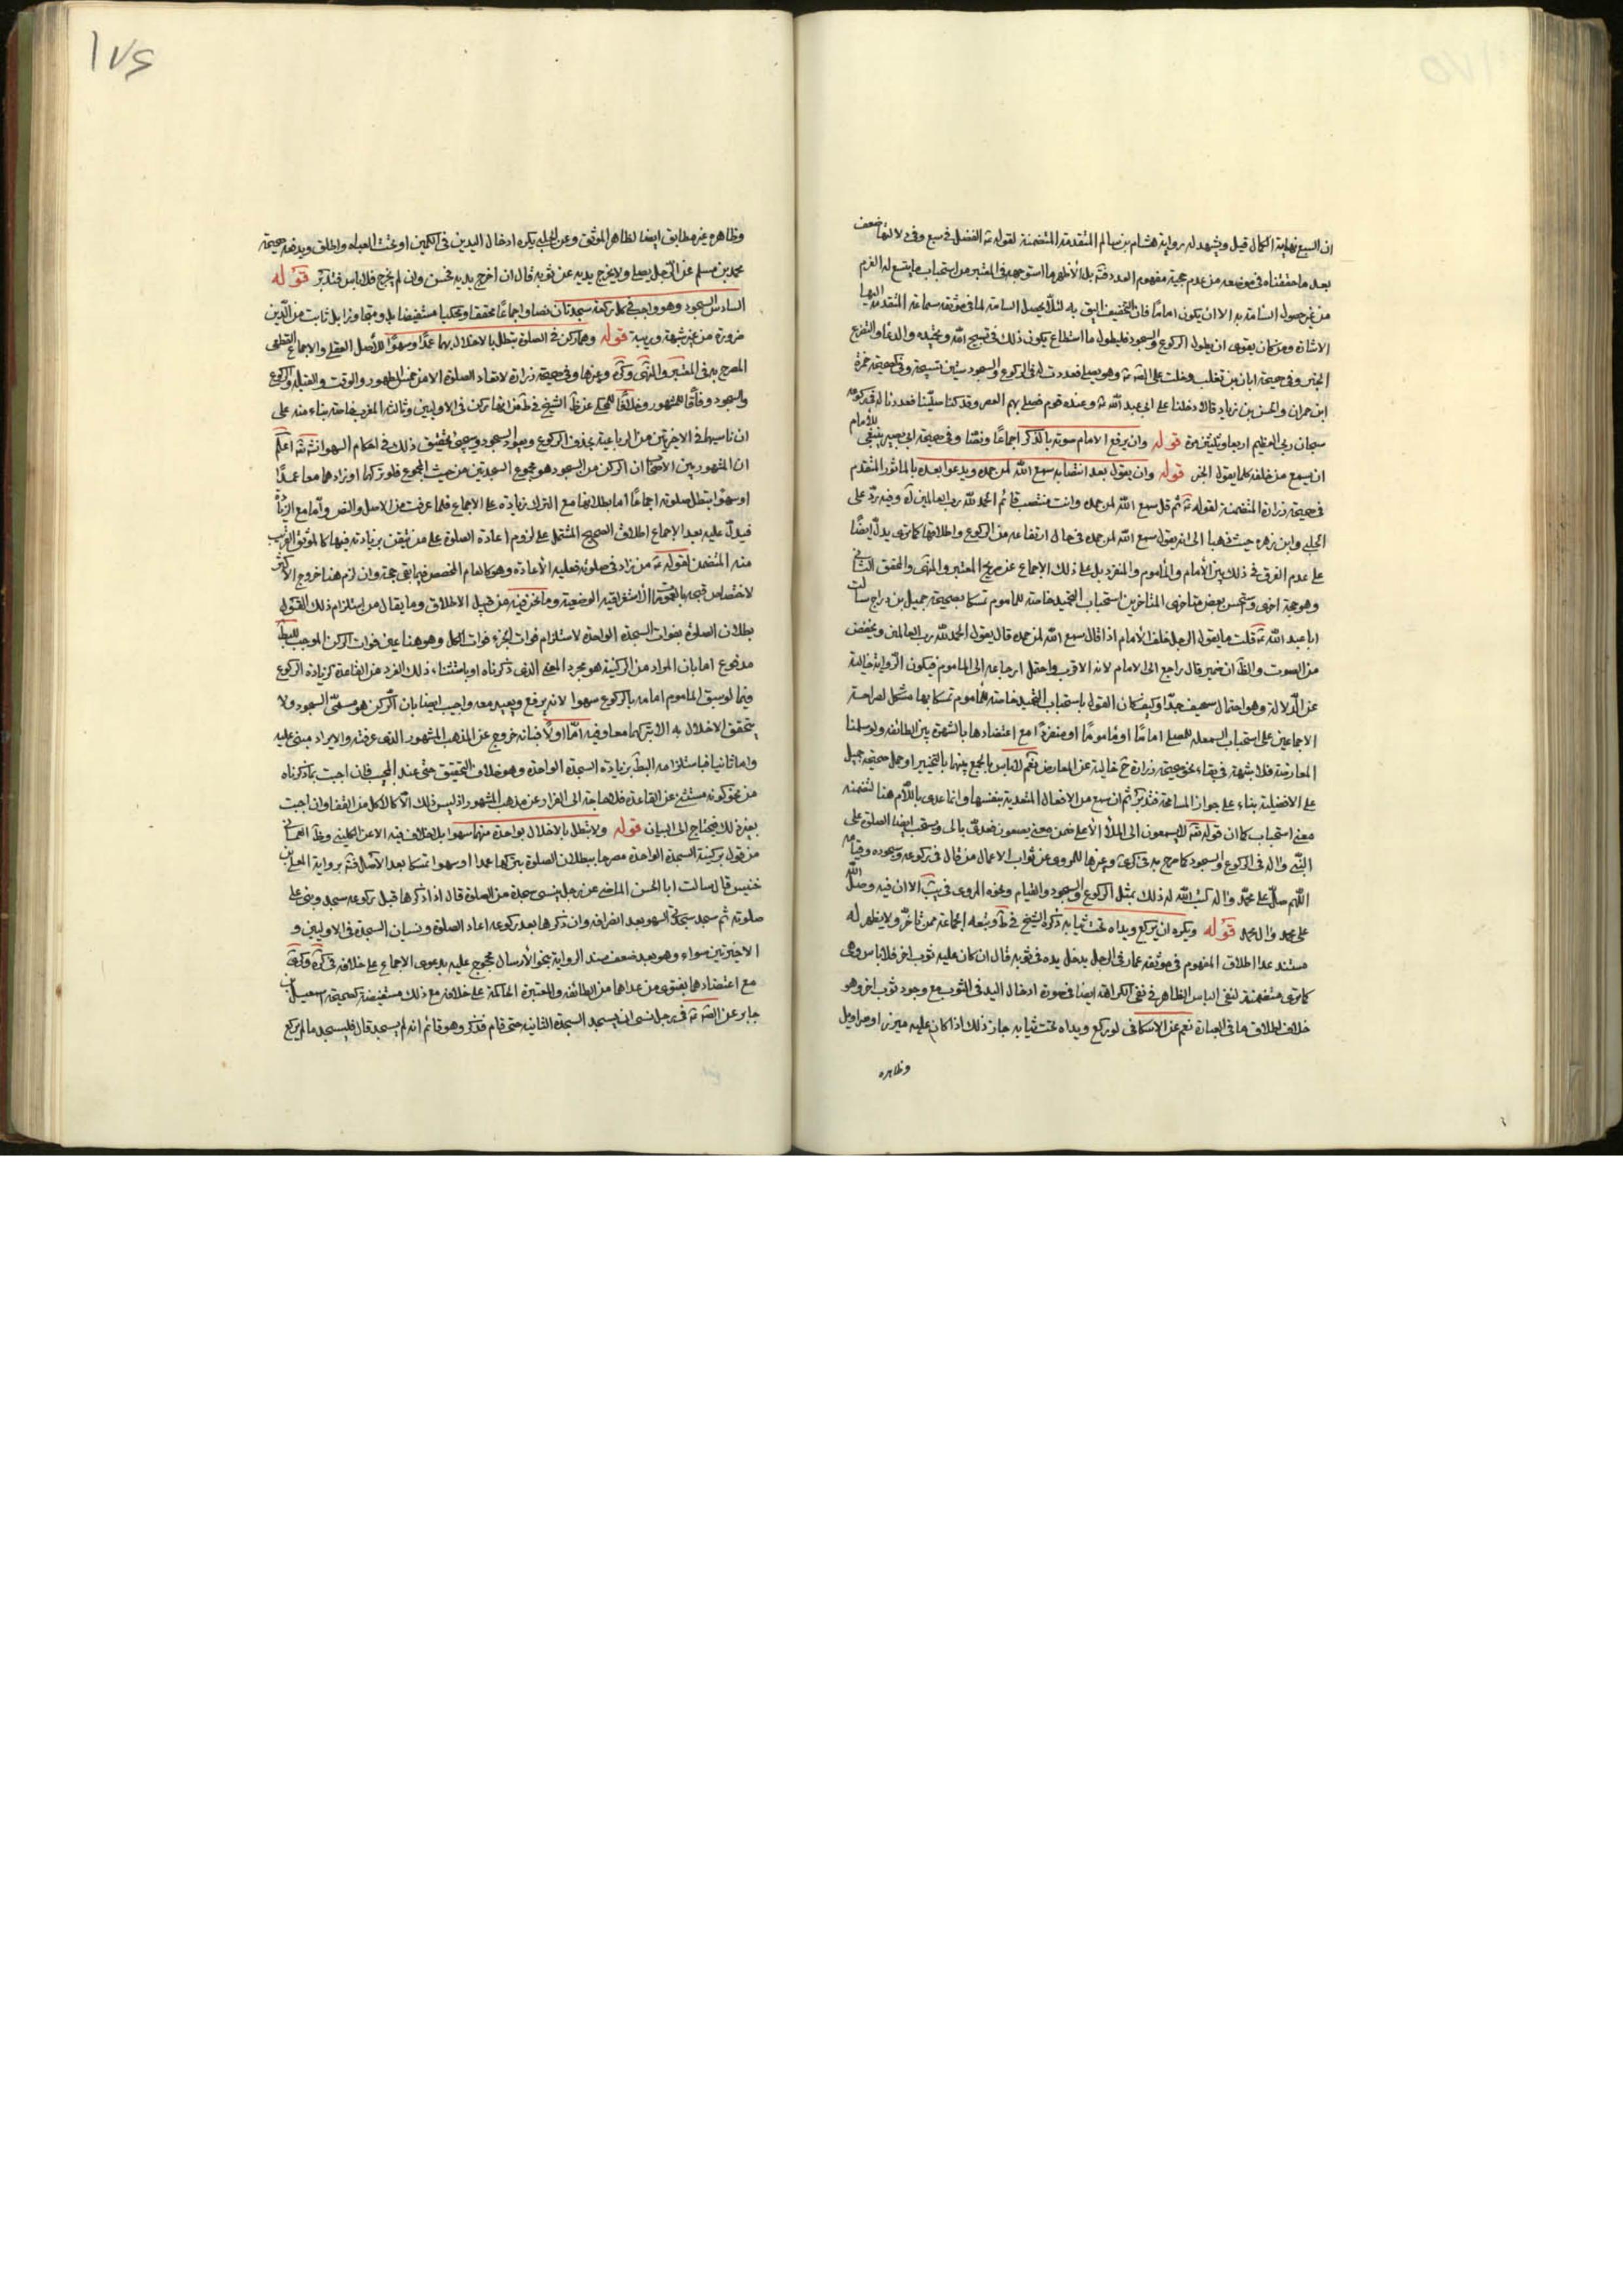 ان السبع نهاية الكمال قيل ويشهد له رواية هشام بن سالم المتقدمة المتضمنة لقوله ع الفضل في سبع وفي دلالتها ضعف
بعد ما حققناه في موضعه من عدم حجية مفهوم العدد فت بل الأظهر ما استوجهه في المعتبر من استحباب ما يتسع له العزم
من غير حصول السامة به الا ان يكون اماما فان التخفيف اليق به لئلا يحصل السامة لما في موثقة سماعة المتقدمة اليها
الاشارة ومن كان يقوى ان يطول الركوع والسجود فليطول ما استطاع يكون ذلك في تسبيح الله وتحميده والدعاء والتضرع
الخبر وفي صحيحة ابان بن تغلب دخلت على الص ع وهو يصلي فعددت له في الركوع والسجود ستين تسبيحة وفي صحيحة حمزة
ابن حمران والحسن بن زياد قالا دخلنا على ابي عبد الله ع وعنده قوم فصلى بهم العصر وقد كنا صلينا فعددنا له في ركوعه
سبحان ربي العظيم اربعا وثلثين مرة قوله وان يرفع الامام صوته بالذكر اجماعا ونصا وفي صحيحة ابي بصير ينبغي للامام
ان يسمع من خلفه كلما يقول الخبر قوله وان يقول بعد انتصابه سمع الله لمن حمده ويدعوا بعده بالماثور المتقدم
في صحيحة زرارة المتضمنة لقوله ع ثم قل سمع الله لمن حمده وانت منتصب قائم الحمد لله رب العالمين آه وفيه رد على
الحلبي وابن زهرة حيث ذهبا الى انه يقول سمع الله لمن حمده في حال ارتفاعه من الركوع واطلاقها كما ترى يدل ايضا
على عدم الفرق في ذلك بين الامام والماموم والمنفرد بل على ذلك الاجماع عن صريح المعتبر والمنتهى والمحقق الثاني
وهو حجة اخرى واستحسن بعض متاخري المتاخرين استحباب التحميد خاصة للماموم تمسكا بصحيحة جميل بن دراج سالت
ابا عبد الله ع قلت ما يقول الرجل خلف الامام اذا قال سمع الله لمن حمده قال يقول الحمد لله رب العالمين ويخفض
من الصوت والظ ان ضمير قال راجع الى الامام لانه الاقرب واحتمل ارجاعه الى الماموم فيكون الرواية خالية
عن الدلالة وهو احتمال سخيف جدا وكيف كان القول باستحباب التحميد خاصة للماموم تمسكا بها مشكل لصراحة
الاجماعين على استحباب السمعلة للمصلي اماما او ماموما او منفردا مع اعتضادها بالشهرة بين الطائفة ولو سلمنا
المعارضة فلا شبهة في بقاء نحو صحيحة زرارة ح خالية عن المعارض نعم لا باس بالجمع بينها بالتخيير او حمل صحيحة جميل
على الافضلية بناء على جواز المسامحة فتدبر ثم ان سمع من الافعال المتعدية بنفسها وانما عدى باللام هنا لتضمنه
معنى استجاب كما ان قوله تع لا يسمعون الى الملأ الأعلى ضمن معنى يصغون فعدى بالى ويستحب ايضا الصلوة على
النبي وآله في الركوع والسجود كما صرح به في كرى وغيرها للمروي عن ثواب الاعمال من قال في ركوعه وسجوده وقيامه
اللهم صل على محمد وآله كتب الله له ذلك بمثل الركوع والسجود والقيام ونحوه المروي في يب الا ان فيه وصلى الله
على محمد وآل محمد قوله ويكره ان يركع ويداه تحت ثيابه ذكره الشيخ في ط وتبعه الجماعة ممن تاخر ولا يظهر له
مستند عدا اطلاق المفهوم في موثقة عمار في الرجل يدخل يده في ثوبه قال ان كان عليه ثوب اخر فلا باس وهي
كما ترى متضمنة لنفي الباس الظاهر في نفي الكراهة ايضا في صورة ادخال اليد في الثوب مع وجود ثوب اخر وهو
خلاف اطلاق ما في العبارة نعم عن الاسكافي لو ركع ويداه تحت ثيابه جاز ذلك اذا كان عليه ميزر او سراويل
وظاهره
١٧٤
وظاهره غير مطابق ايضا لظاهر الموثق وعن الحلبي يكره ادخال اليدين في الكمين او تحت الثياب واطلق ويدفعه صحيحة
محمد بن مسلم عن الرجل يصلي ولا يخرج يديه عن ثوبه قال ان اخرج يديه فحسن وان لم يخرج فلا باس فتدبر قوله
السادس السجود وهو واجب في كل ركعة سجدتان نصا واجماعا محققا ومحكيا مستفيضا بل ومتواترا بل ثابت من الدين
ضرورة من غير شبهة وريبة قوله وهما ركن في الصلوة تبطل بالاخلال بهما عمدا وسهوا للأصل العقلي والاجماع القطعي
المصرح به في المعتبر والمنتهى وكرى وغيرها وفي صحيحة زرارة لا تعاد الصلوة الا من خمس الطهور والوقت والقبلة والركوع
والسجود وفاقا للمشهور وخلافا للمحكي عن ظ الشيخ في ط من انهما ركن في الاوليين وثالثة المغرب خاصة بناء منه على
ان ناسيهما في الاخرتين من الرباعية يحذف الركوع ويعود السجود وسيجئ تحقيق ذلك في احكام السهو انشه تع اعلم
ان المشهور بين الاصحاب ان الركن من السجود هو مجموع السجدتين من حيث المجموع فلو تركهما او زادهما معا عمدا
او سهوا بتطل صلوته اجماعا اما بطلانها مع الترك زيادة على الاجماع فلما عرفت من الاصل والنص واما مع الزيادة
فيدل عليه بعد الاجماع اطلاق الصحيح المشتمل على لزوم اعادة الصلوة على من تيقن بزيادته فيها كالموثق القريب
منه المتضمن لقوله ع من زاد في صلوته فعليه الأعادة وهو كالعام المخصص فيما بقي حجة وان لزم هنا خروج الأكثر
بطلان الصلوة بفوات السجدة الواحدة لاستلزام فوات الجزء فوات الكل وهو هنا عين فوات الركن الموجب للبط
مدفوع اما بان المراد من الركنية هو مجرد المعنى الذي ذكرناه او باستثناء ذلك الفرد من القاعدة كزيادة الركوع
فيما لو سبق الماموم امامه بالركوع سهوا لانه يرفع ويعيد معه واجيب ايضا بان الركن هو مسمى السجود ولا
يتحقق الاخلال به الا بتركهما معا وفيه اما اولا فبانه خروج عن المذهب المشهور الذي عرفته والايراد مبنى عليه
واما ثانيا فباستلزامه البط بزيادة السجدة الواحدة وهو خلاف التحقيق حتى عند المجيب فان اجيب بما ذكرناه
من نحو كونه مستثنى عن القاعدة فلا حاجة الى الفرار عن مذهب المشهور اذ ليس ذلك الا كالاكل من القفا وان اجيب
بغيره لك فيحتاج الى البيان قوله ولا تبطل بالاخلال بواحدة منهما سهوا بلا خلاف فيه الا عن الكليني وظ العماني
من قول بركنية السجدة الواحدة مصرحا ببطلان الصلوة بتركها عمدا او سهوا تمسكا بعد الأصل فت برواية المعلى بن
خنيس قال سالت ابا الحسن الماضي عن رجل ينسى سجدة من الصلوة قال اذا ذكرها قبل ركوعه سجد وبنى على
صلوته ثم سجد سجدتي السهو بعد انصرافه وان ذكرها بعد ركوعه اعاد الصلوة ونسيان السجدة في الاوليين و
الاخيرتين سواء وهو بعد ضعف سند الرواية بنحو الأرسال محجوج عليه بدعوى الاجماع على خلافه في كرى
مع اعتضادها بفتوى من عداهما من الطائفة والمعتبرة الحاكمة على خلافه مع ذلك مستفيضة كصحيحة اسمعيل بن
جابر عن الص ع في رجل نسي ان يسجد السجدة الثانية حتى قام فذكر وهو قائم انه لم يسجد قال فليسجد ما لم يركع